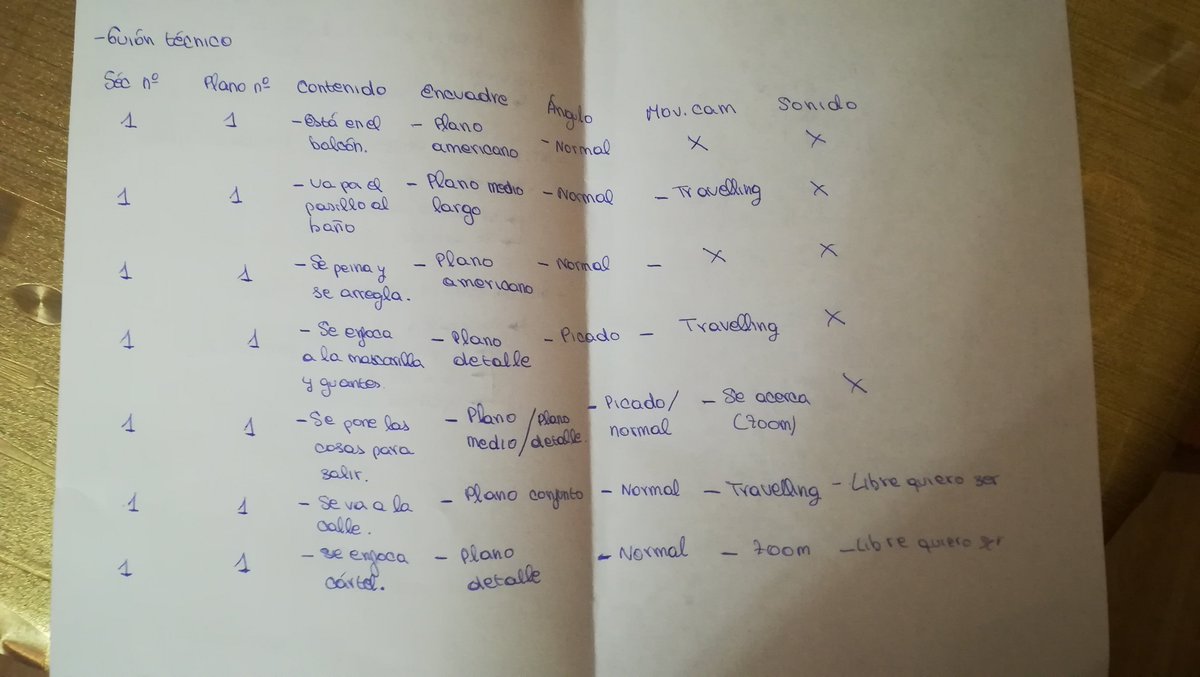 -Guión técnico
Séc nº Plano nº Contenido Encuadre Ángulo Mov.cam Sonido
1 1 -Está en el - Plano - Normal X X
balcón. americano
1 1 - Va por el - Plano medio - Normal - Travelling X
pasillo al largo
baño
1 1 - Se peina y - Plano - Normal - X X
se arregla. americano
1 1 - Se enfoca - Plano - Picado - Travelling X
a la mascarilla detalle
y guantes.
1 1 - Se pone las - Plano / Plano - Picado / - Se acerca X
cosas para medio / detalle. normal (zoom)
salir.
1 1 - Se va a la - Plano conjunto - Normal - Travelling - Libre quiero ser
calle.
1 1 - Se enfoca - Plano - Normal - zoom - Libre quiero ser
cártel. detalle